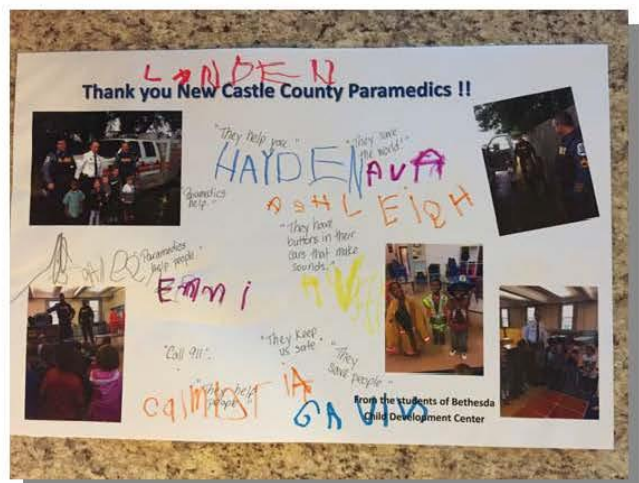 LANDEN
Thank you New Castle County Paramedics !!
"They help you."
"They save
the world!"
HAYDEN
AVA
Paramedics
help."
ASHLEIGH
"They have
buttons in their
cars that make
sounds."
Paramedics
help people."
Emmi
"Call 911".
"They keep
us safe."
"They
save people."
"They help
people."
GAVIN
From the students of Bethesda
Child Development Center